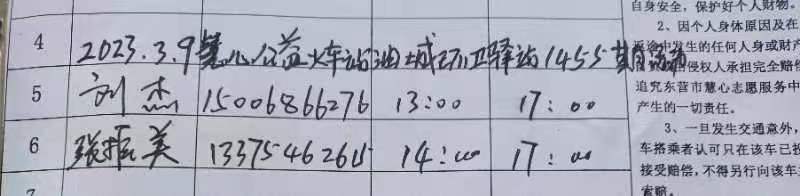 4 2023.3.9慧心公益火车站油城环卫驿站1455期活动
5 刘杰 15006866276 13:00 17:00
6 张振美 1337546264 14:00 17:00
7
自身安全,保护好个人财物。
2、因个人身体原因及在
返途中发生的任何人身或财产
侵权人承担完全赔偿
追究东营市慧心志愿服务中
产生的一切责任。
3、一旦发生交通意外,
车搭乘者认可只在该车已投
接受赔偿,不得另行向该车
索赔。